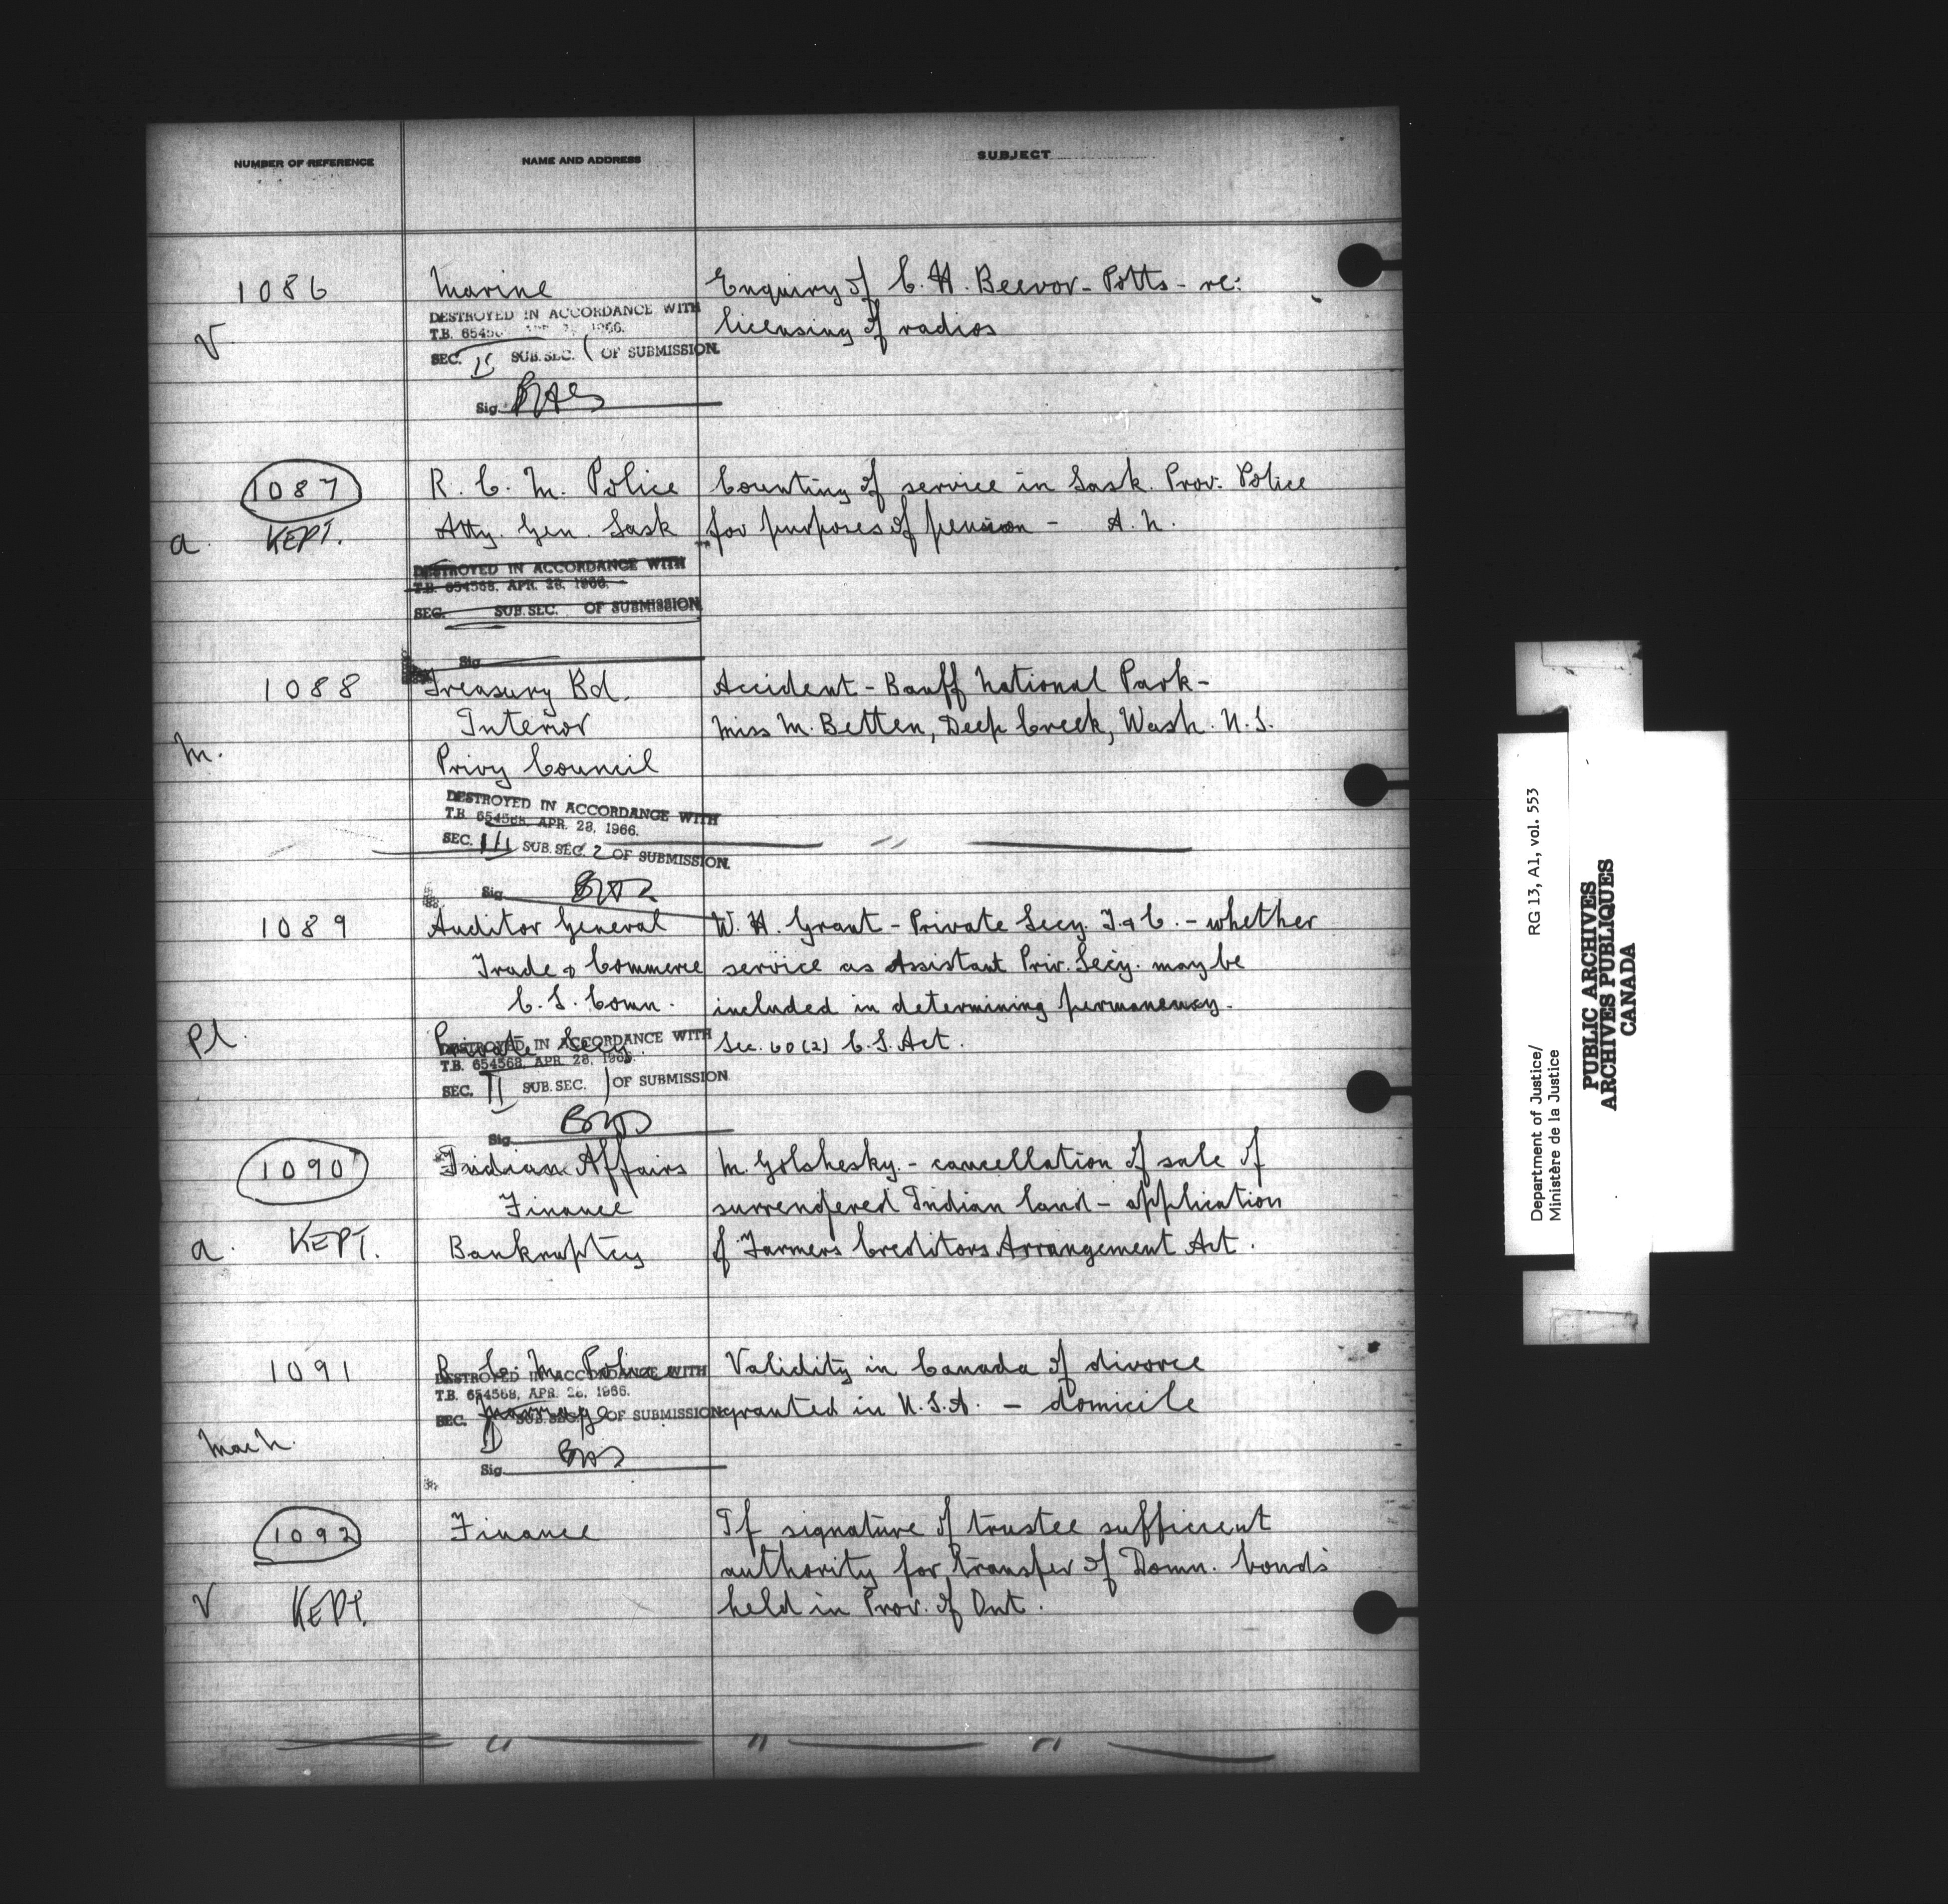 NUMBER OF REFERENCE NAME AND ADDRESS SUBJECT
1086 Marine Enquiry of C. H. Beevor-Potts - re:
DESTROYED IN ACCORDANCE WITH
licensing of radios
T.B. 65456 APR. 1966.
V
SEC. II SUB. SEC. 1 OF SUBMISSION.
Sig.
1087 R. C. M. Police Counting of service in Sask. Prov. Police
a. KEPT. Atty. Gen. Sask for purposes of pension - A. h.
DESTROYED IN ACCORDANCE WITH
T.B. 654568, APR. 28, 1966.
SEC. SUB. SEC. OF SUBMISSION
Sig
1088 Treasury Bd. Accident - Banff National Park -
Interior Miss M. Betten, Deep Creek, Wash. U.S.
m. Privy Council
DESTROYED IN ACCORDANCE WITH
T.B. 654568, APR. 28, 1966.
SEC. III SUB. SEC. 2 OF SUBMISSION.
Sig.
1089 Auditor General W. H. Grant - Private Secy. T. & C. - whether
Trade & Commerce service as Assistant Priv. Secy. may be
C. S. Comn. included in determining permanency.
Pl. Private Secy. Sec. 60 (2) C. S. Act.
DESTROYED IN ACCORDANCE WITH
T.B. 654568, APR. 28, 1966.
SEC. II SUB. SEC. 1 OF SUBMISSION
Sig.
1090 Indian Affairs M. Golshesky. - cancellation of sale of
Finance surrendered Indian land - application
a. KEPT. Bankruptcy of Farmers Creditors Arrangement Act.
1091 R. C. M. Police Validity in Canada of divorce
DESTROYED IN ACCORDANCE WITH
T.B. 654568, APR. 28, 1966.
Marriage granted in U.S.A. - domicile
SEC. II SUB. SEC. OF SUBMISSION
Mach.
Sig.
1092 Finance If signature of trustee sufficient
authority for transfer of Domn. bonds
V KEPT. held in Prov. of Ont.
Department of Justice/ RG 13, A1, vol. 553
Ministère de la Justice
PUBLIC ARCHIVES
ARCHIVES PUBLIQUES
CANADA